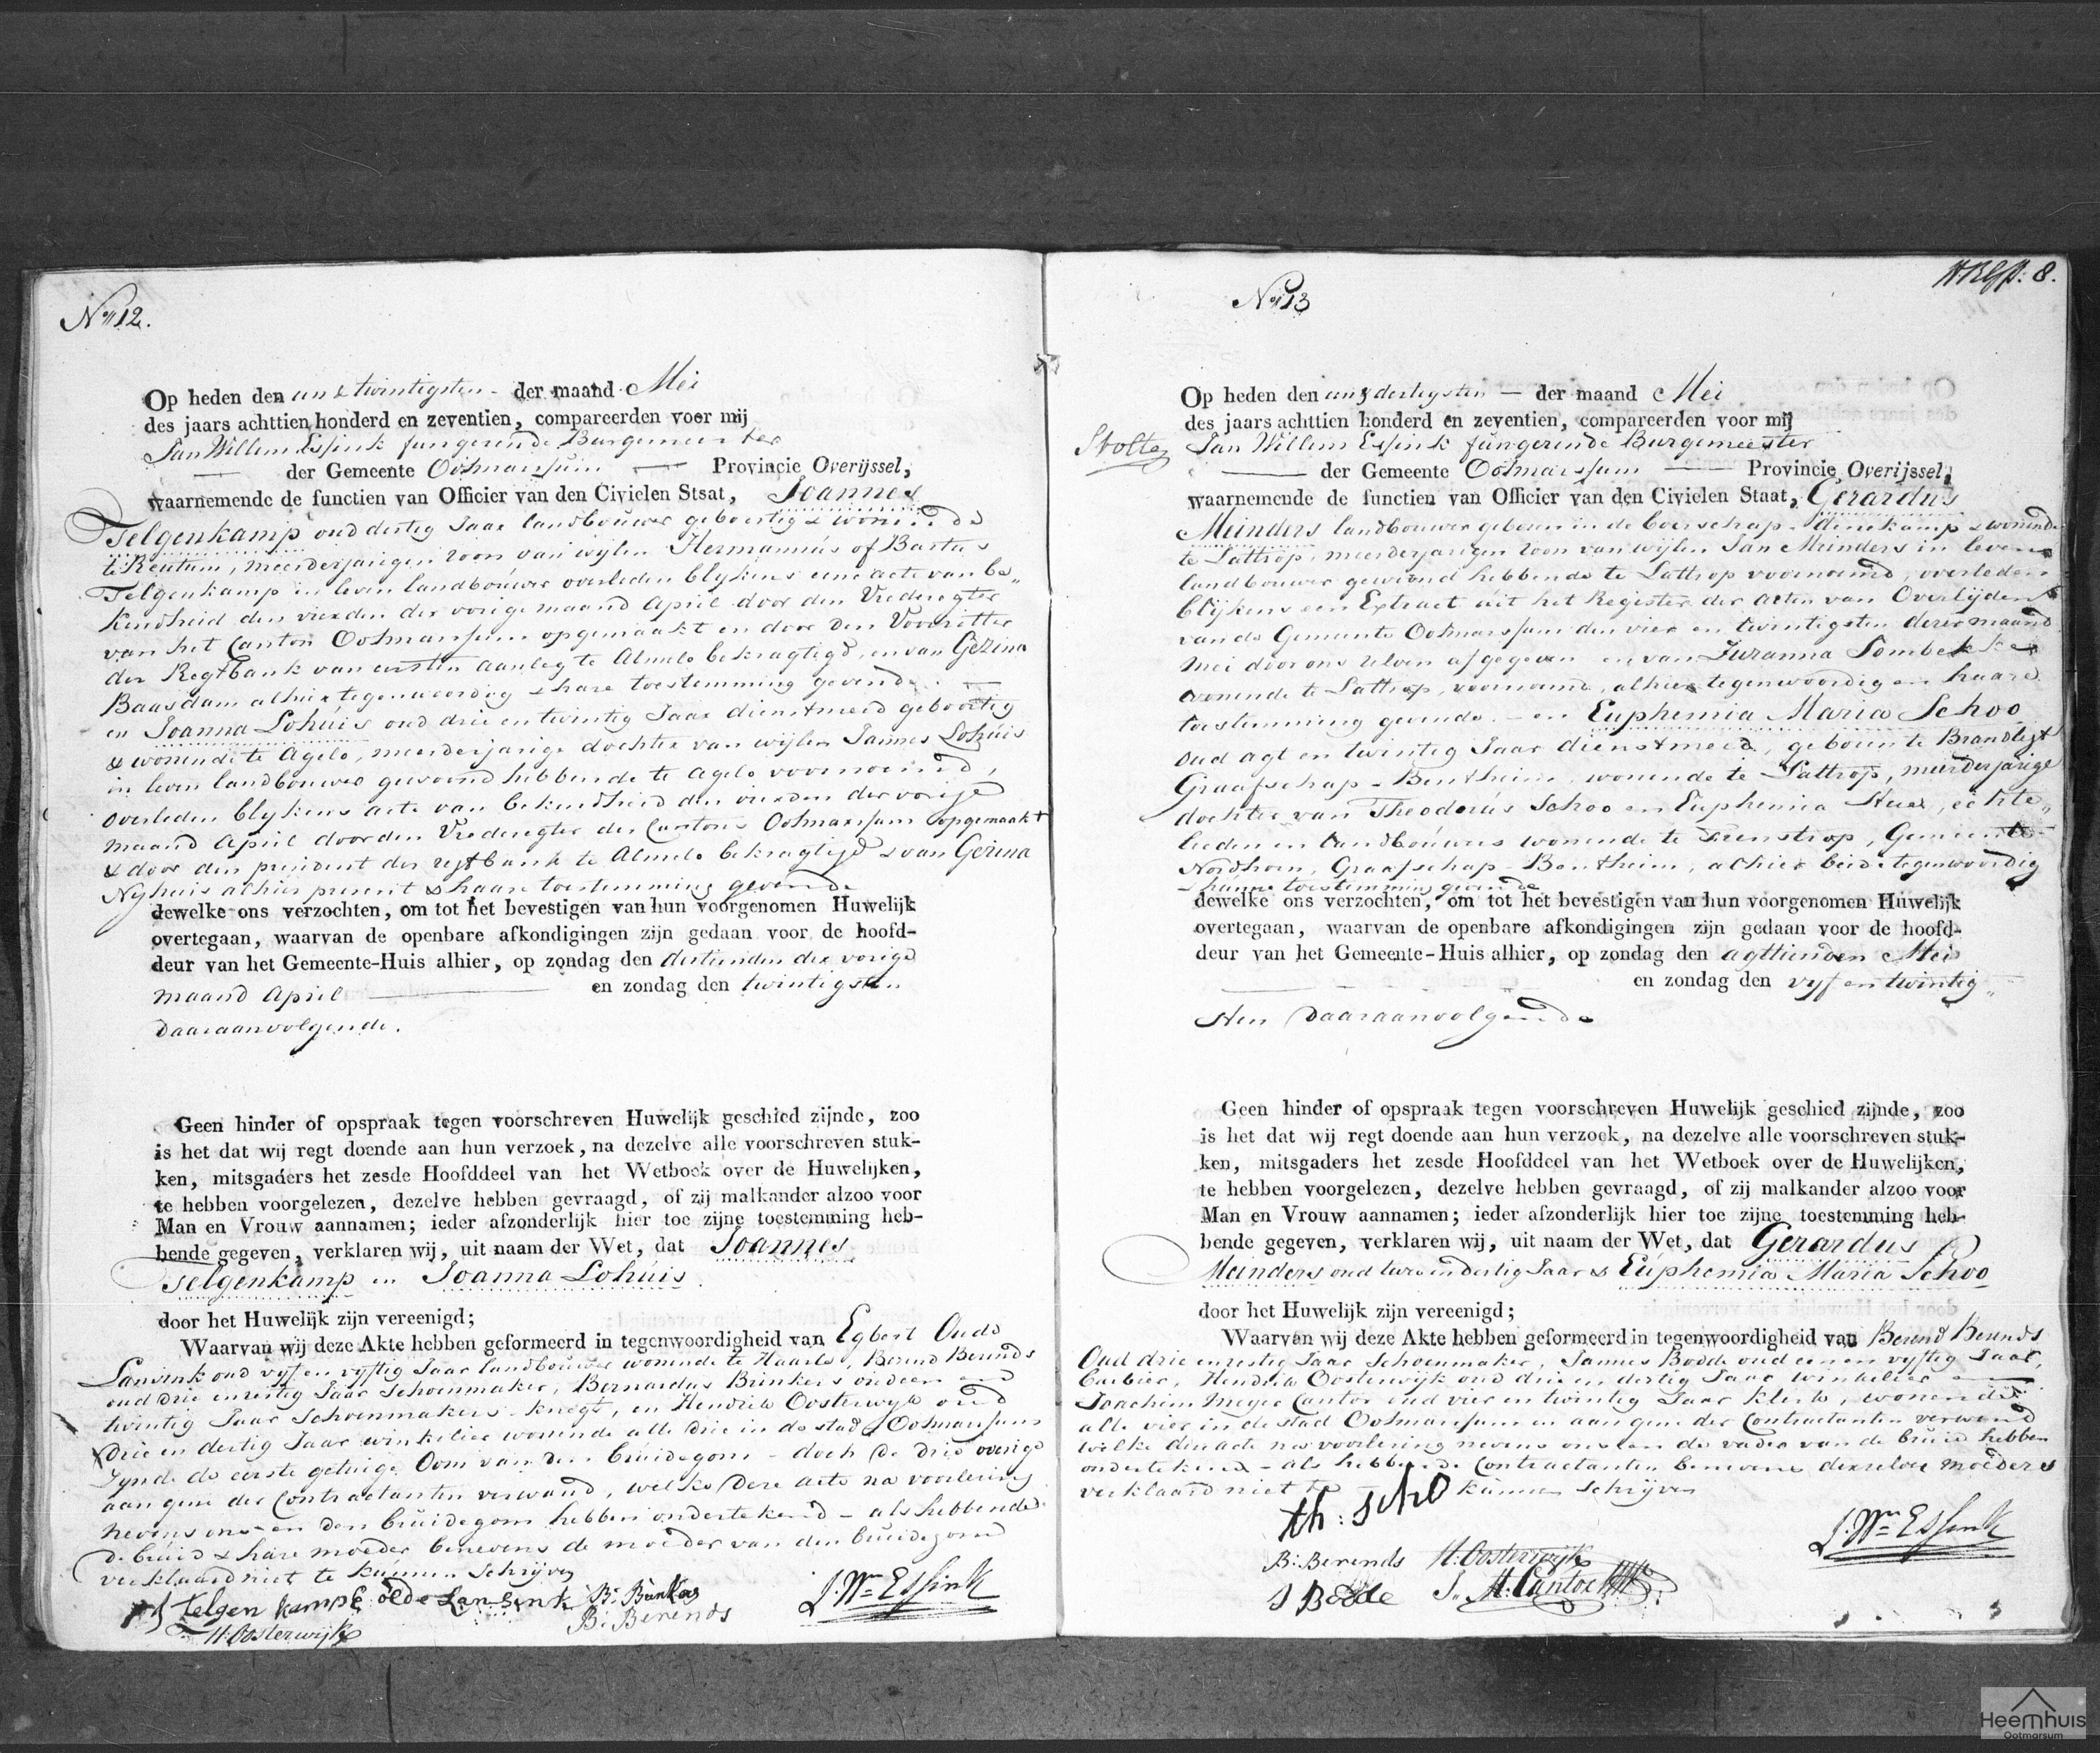 No 12.
Op heden den een & twintigsten - der maand Mei
des jaars achttien honderd en zeventien, compareerden voor mij
Jan Willem Essink fungerende Burgemeester
der Gemeente Ootmarssum Provincie Overijssel,
waarnemende de functien van Officier van den Civielen Stsat, Joannes
Telgenkamp oud dertig Jaar landbouwer geboortig & wonende
te Reutum, meerderjarigen zoon van wijlen Hermannus of Bartus
Telgenkamp in leven landbouwer overleden blykens eene acte van be„
kendheid den vierden der vorige maand April door den Vrederegter
van het Canton Ootmarssum opgemaakt en door den Voorzitter
der Regtbank van eersten aanleg te Almelo bekragtigd, en van Gezina
Baasdam alhier tegenwoordig & hare toestemming gevende. —
en Joanna Lohuis oud drie en twintig Jaar dienstmeid geboortig
& wonende te Agelo, meerderjarige dochter van wijlen Jannes Lohuis
in leven landbouwer gewoond hebbende te Agelo voornoemd,
overleden blykens acte van bekendheid den vierden der vorige
maand April door den Vrederegter des Cantons Ootmarssum opgemaakt
& door den president der regtbank te Almelo bekragtigd & van Gerina
Nyhuis alhier present & haare toestemming gevende
dewelke ons verzochten, om tot het bevestigen van hun voorgenomen Huwelijk
overtegaan, waarvan de openbare afkondigingen zijn gedaan voor de hoofd-
deur van het Gemeente-Huis alhier, op zondag den dertienden der vorige
maand April en zondag den twintigsten
daaraanvolgende.
Geen hinder of opspraak tegen voorschreven Huwelijk geschied zijnde, zoo
is het dat wij regt doende aan hun verzoek, na dezelve alle voorschreven stuk-
ken, mitsgaders het zesde Hoofddeel van het Wetboek over de Huwelijken,
te hebben voorgelezen, dezelve hebben gevraagd, of zij malkander alzoo voor
Man en Vrouw aannamen; ieder afzonderlijk hier toe zijne toestemming heb-
bende gegeven, verklaren wij, uit naam der Wet, dat Joannes
Telgenkamp en Joanna Lohuis.
door het Huwelijk zijn vereenigd;
Waarvan wij deze Akte hebben geformeerd in tegenwoordigheid van Egbert Oude
Lansink oud vyf en vyftig Jaar landbouwer wonende te Haarle, Berend Berends
oud drie en zestig Jaar Schoenmaker, Bernardus Brinkers oud een en
twintig Jaar Schoenmakers-knegt, en Hendrik Oosterwyk oud
drie en dertig Jaar winkelier wonende alle drie in de stad Ootmarssum
zynde de eerste getuige Oom van den bruidegom - doch de drie overige
aan geen der Contractanten verwand, welke deze acte na voorlezing
nevens ons en den bruidegom hebben ondertekend - als hebbende
de bruid & hare moeder benevens de moeder van den bruidegom
verklaard niet te kunnen Schrijven
Telgenkamp E olde Lansenk B: Brinkers
H: Oosterwijk B: Berends J: Wm Essink
No 13
8.
Op heden den een & dertigsten — der maand Mei
des jaars achttien honderd en zeventien, compareerden voor mij
Stolte Jan Willem Essink fungerende Burgemeester
der Gemeente Ootmarssum Provincie Overijssel,
waarnemende de functien van Officier van den Civielen Staat, Gerardus
Meinders landbouwer geboren in de boerschap - dinekamp & wonende
te Lattrop, meerderjarigen zoon van wijlen Jan Meinders in leven
landbouwer gewoond hebbende te Lattrop voornoemd, overleden
blijkens een Extract uit het Register der acten van Overlijden
van de Gemeente Ootmarssum den vier en twintigsten dezer maand
Mei door ons zelven afgegeven en van Zuzanna Sombekke
wonende te Lattrop, voornoemd, alhier tegenwoordig en haare
toestemming gevende. - en Euphemia Maria Schoo
oud agt en twintig Jaar dienstmeid, geboren te Brandlegt
Graafschap - Bentheim, wonende te Lattrop, meerderjarige
dochter van Theodorus Schoo en Euphemia Stuer, echte„
lieden en landbouwers wonende te Frenstrop, Gemeente
Nordhorn, Graafschap - Bentheim, alhier beide tegenwoordig
& hunne toestemming gevende
dewelke ons verzochten, om tot het bevestigen van hun voorgenomen Huwelijk
overtegaan, waarvan de openbare afkondigingen zijn gedaan voor de hoofd-
deur van het Gemeente-Huis alhier, op zondag den agttienden Mei
en zondag den vyf en twintig„
sten daaraanvolgende
Geen hinder of opspraak tegen voorschreven Huwelijk geschied zijnde, zoo
is het dat wij regt doende aan hun verzoek, na dezelve alle voorschreven stuk-
ken, mitsgaders het zesde Hoofddeel van het Wetboek over de Huwelijken,
te hebben voorgelezen, dezelve hebben gevraagd, of zij malkander alzoo voor
Man en Vrouw aannamen; ieder afzonderlijk hier toe zijne toestemming heb-
bende gegeven, verklaren wij, uit naam der Wet, dat Gerardus
Meinders oud twee en dertig Jaar & Euphemia Maria Schoo
door het Huwelijk zijn vereenigd;
Waarvan wij deze Akte hebben geformeerd in tegenwoordigheid van Berend Berends
Oud drie en zestig Jaar Schoenmaker, Jannes Bodde oud een en vyftig Jaar,
barbier, Hendrik Oosterwijk oud drie en dertig Jaar winkelier en
Joachim Meyer Cantor oud vier en twintig Jaar klerk, wonende
alle vier in de stad Ootmarssum en aan geen der Contractanten verwand
welke deze acte na voorlezing nevens ons en de vader van de bruid hebben
ondertekend - als hebbende Contractanten benevens derzelver moeders
verklaard niet te kunnen Schrijven
th: scho
J: Wm Essink
B: Berends H: Oosterwijk
J Bodde J. M: Cantor
Heemhuis
Ootmarsum